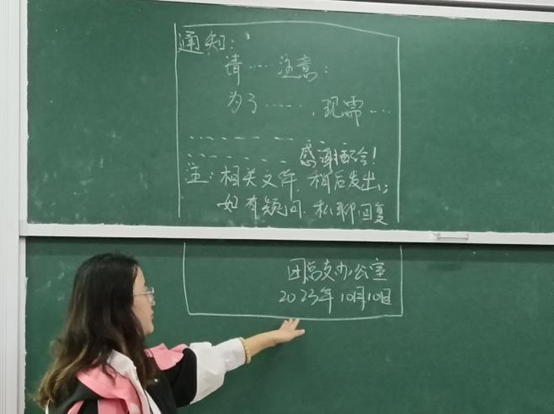 通知：
请……注意：
为了……，现需…
感谢配合！
注：相关文件，稍后发出；
如有疑问，私聊回复
团总支办公室
2023年10月10日